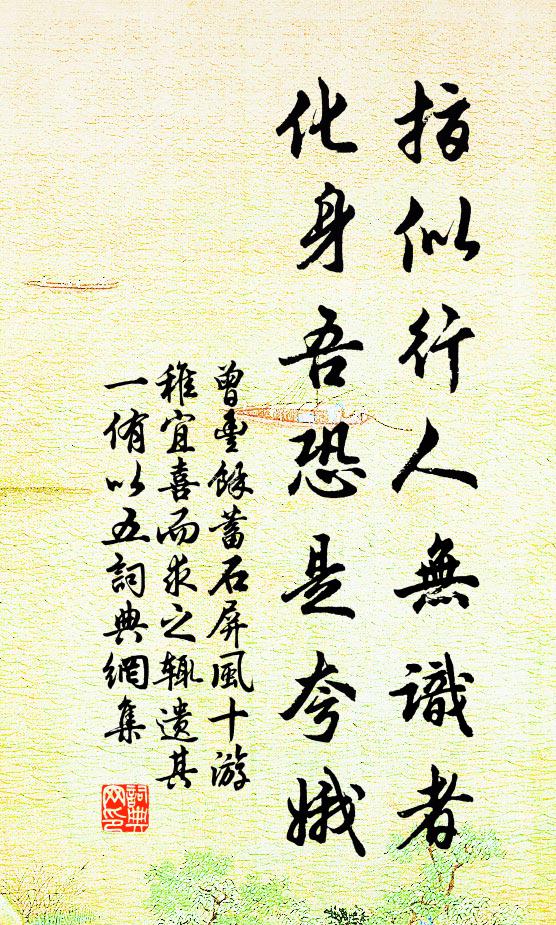 指似行人無識者
化身吾恐是夸娥
曾豐餘蓄石屏風十游
稚宜喜而求之輒遺其
一侑以五詞典網集
詞典網印